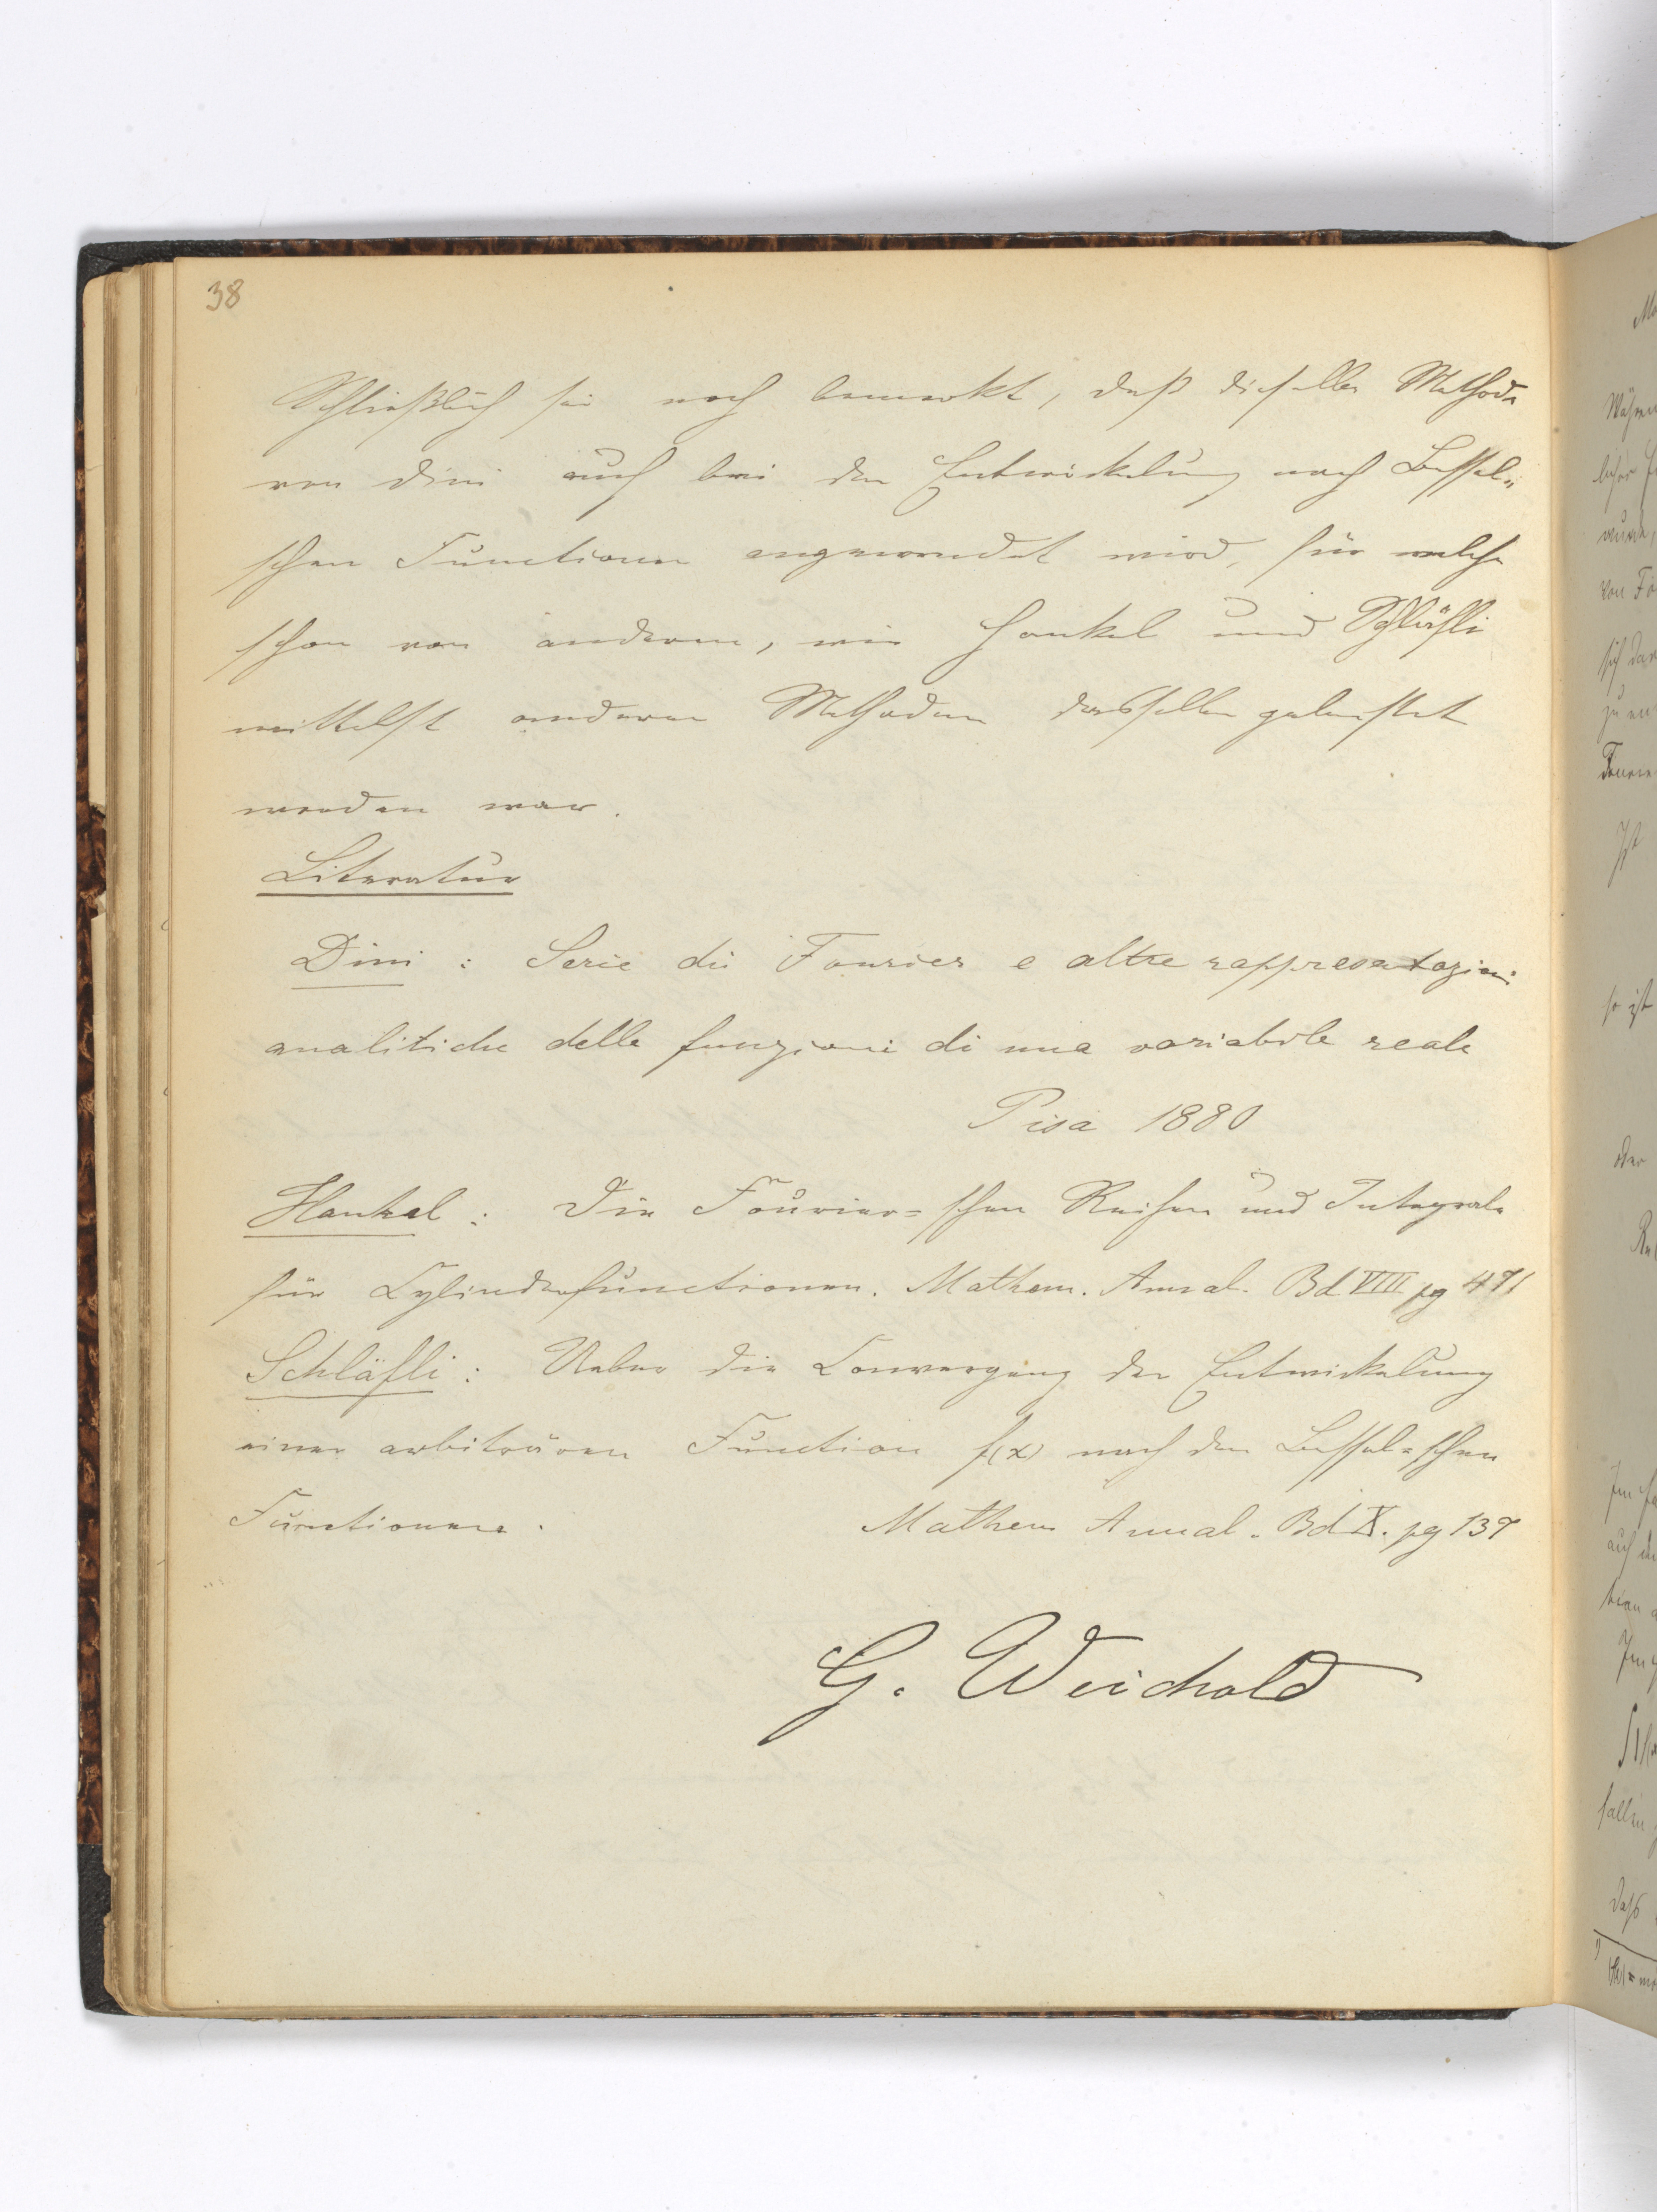 38
Schließlich sei noch bemerkt, daß dieselbe Methode
von Dini auch bei der Entwickelung nach Bessel-
schen Functionen angewendet wird, für welche
schon von anderen, wie Hankel und Schläfli
mittelst anderer Methoden dasselbe geleistet
worden war.
Literatur
Dini : Serie di Fourier e altre rappresentazioni
analitiche delle funzioni di una variabile reale
Pisa 1880
Hankel : Die Fourier=schen Reihen und Integrale
für Cylinderfunctionen. Mathem. Annal. Bd VIII pg 471
Schläfli : Ueber die Convergenz der Entwickelung
einer arbiträren Function f(x) nach den Bessel=schen
Functionen. Mathem Annal. Bd X. pg 137
G. Weichold